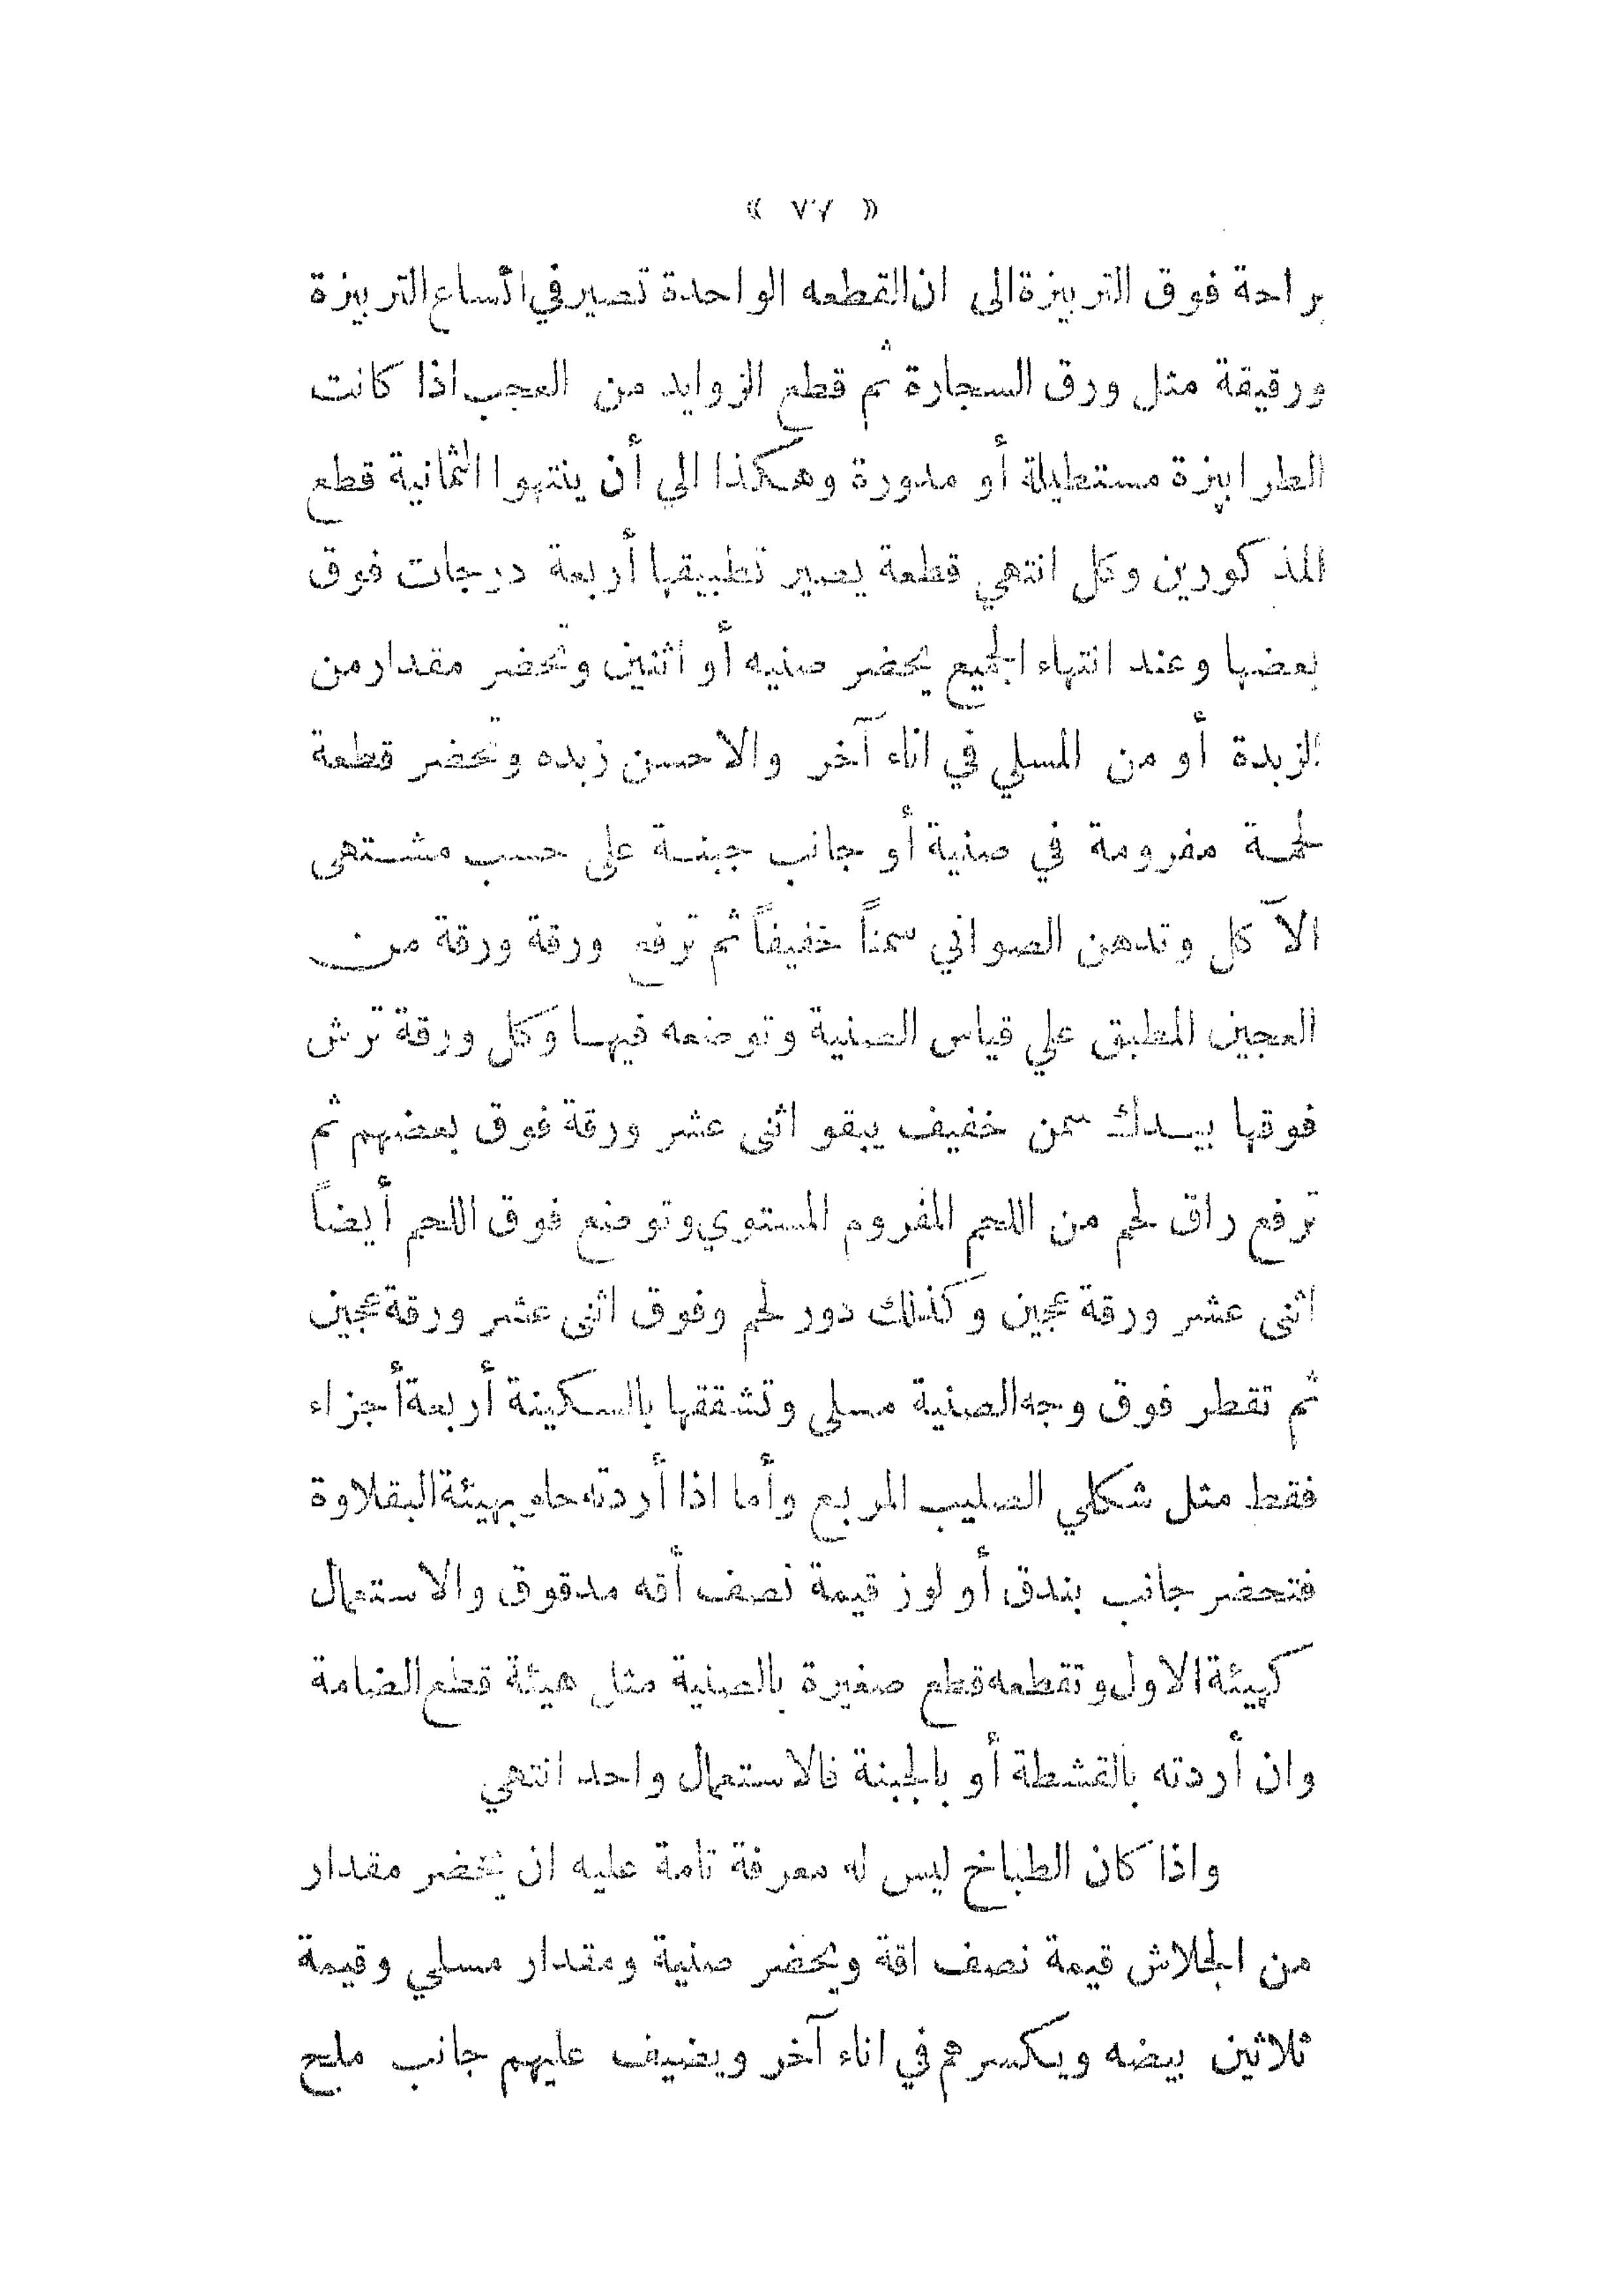 « ٧٧ »
براحة فوق التربيزة الى ان القطعه الواحدة تصير في اتساع التربيزة
ورقيقة مثل ورق السجارة ثم قطع الزوايد من العجب اذا كانت
الطرابيزة مستطيلة أو مدورة وهكذا الي أن ينتهوا الثمانية قطع
المذكورين وكل انتهي قطعة يصير تطبيقها أربعة درجات فوق
بعضها وعند انتهاء الجميع يحضر صنيه أو اثنين وتحضر مقدار من
الزبدة أو من المسلي في اناء آخر والاحسن زبده وتحضر قطعة
لحمة مفرومة في صنية أو جانب جبنة على حسب مشتهى
الآكل وتدهن الصواني سمناً خفيفاً ثم ترفع ورقة ورقة من
العجين المطبق علي قياس الصنية وتوضعه فيها وكل ورقة ترش
فوقها بيدك سمن خفيف يبقو اثنى عشر ورقة فوق بعضهم ثم
ترفع راق لحم من اللحم المفروم المستوي وتوضع فوق اللحم أيضاً
اثنى عشر ورقة عجين وكذلك دور لحم وفوق اثنى عشر ورقة عجين
ثم تقطر فوق وجه الصنية مسلى وتشققها بالسكينة أربعة أجزاء
فقط مثل شكلي الصليب المربع وأما اذا أردته حلو بهيئة البقلاوة
فتحضر جانب بندق أو لوز قيمة نصف أقه مدقوق والاستعمال
كهيئة الاول وتقطعه قطع صغيرة بالصنية مثل هيئة قطع الضامة
وان أردته بالقشطة أو بالجبنة فالاستعمال واحد انتهي
واذا كان الطباخ ليس له معرفة تامة عليه ان يحضر مقدار
من الجلاش قيمة نصف اقة ويحضر صنية ومقدار مسلي وقيمة
ثلاثين بيضه ويكسرهم في اناء آخر ويضيف عليهم جانب ملح